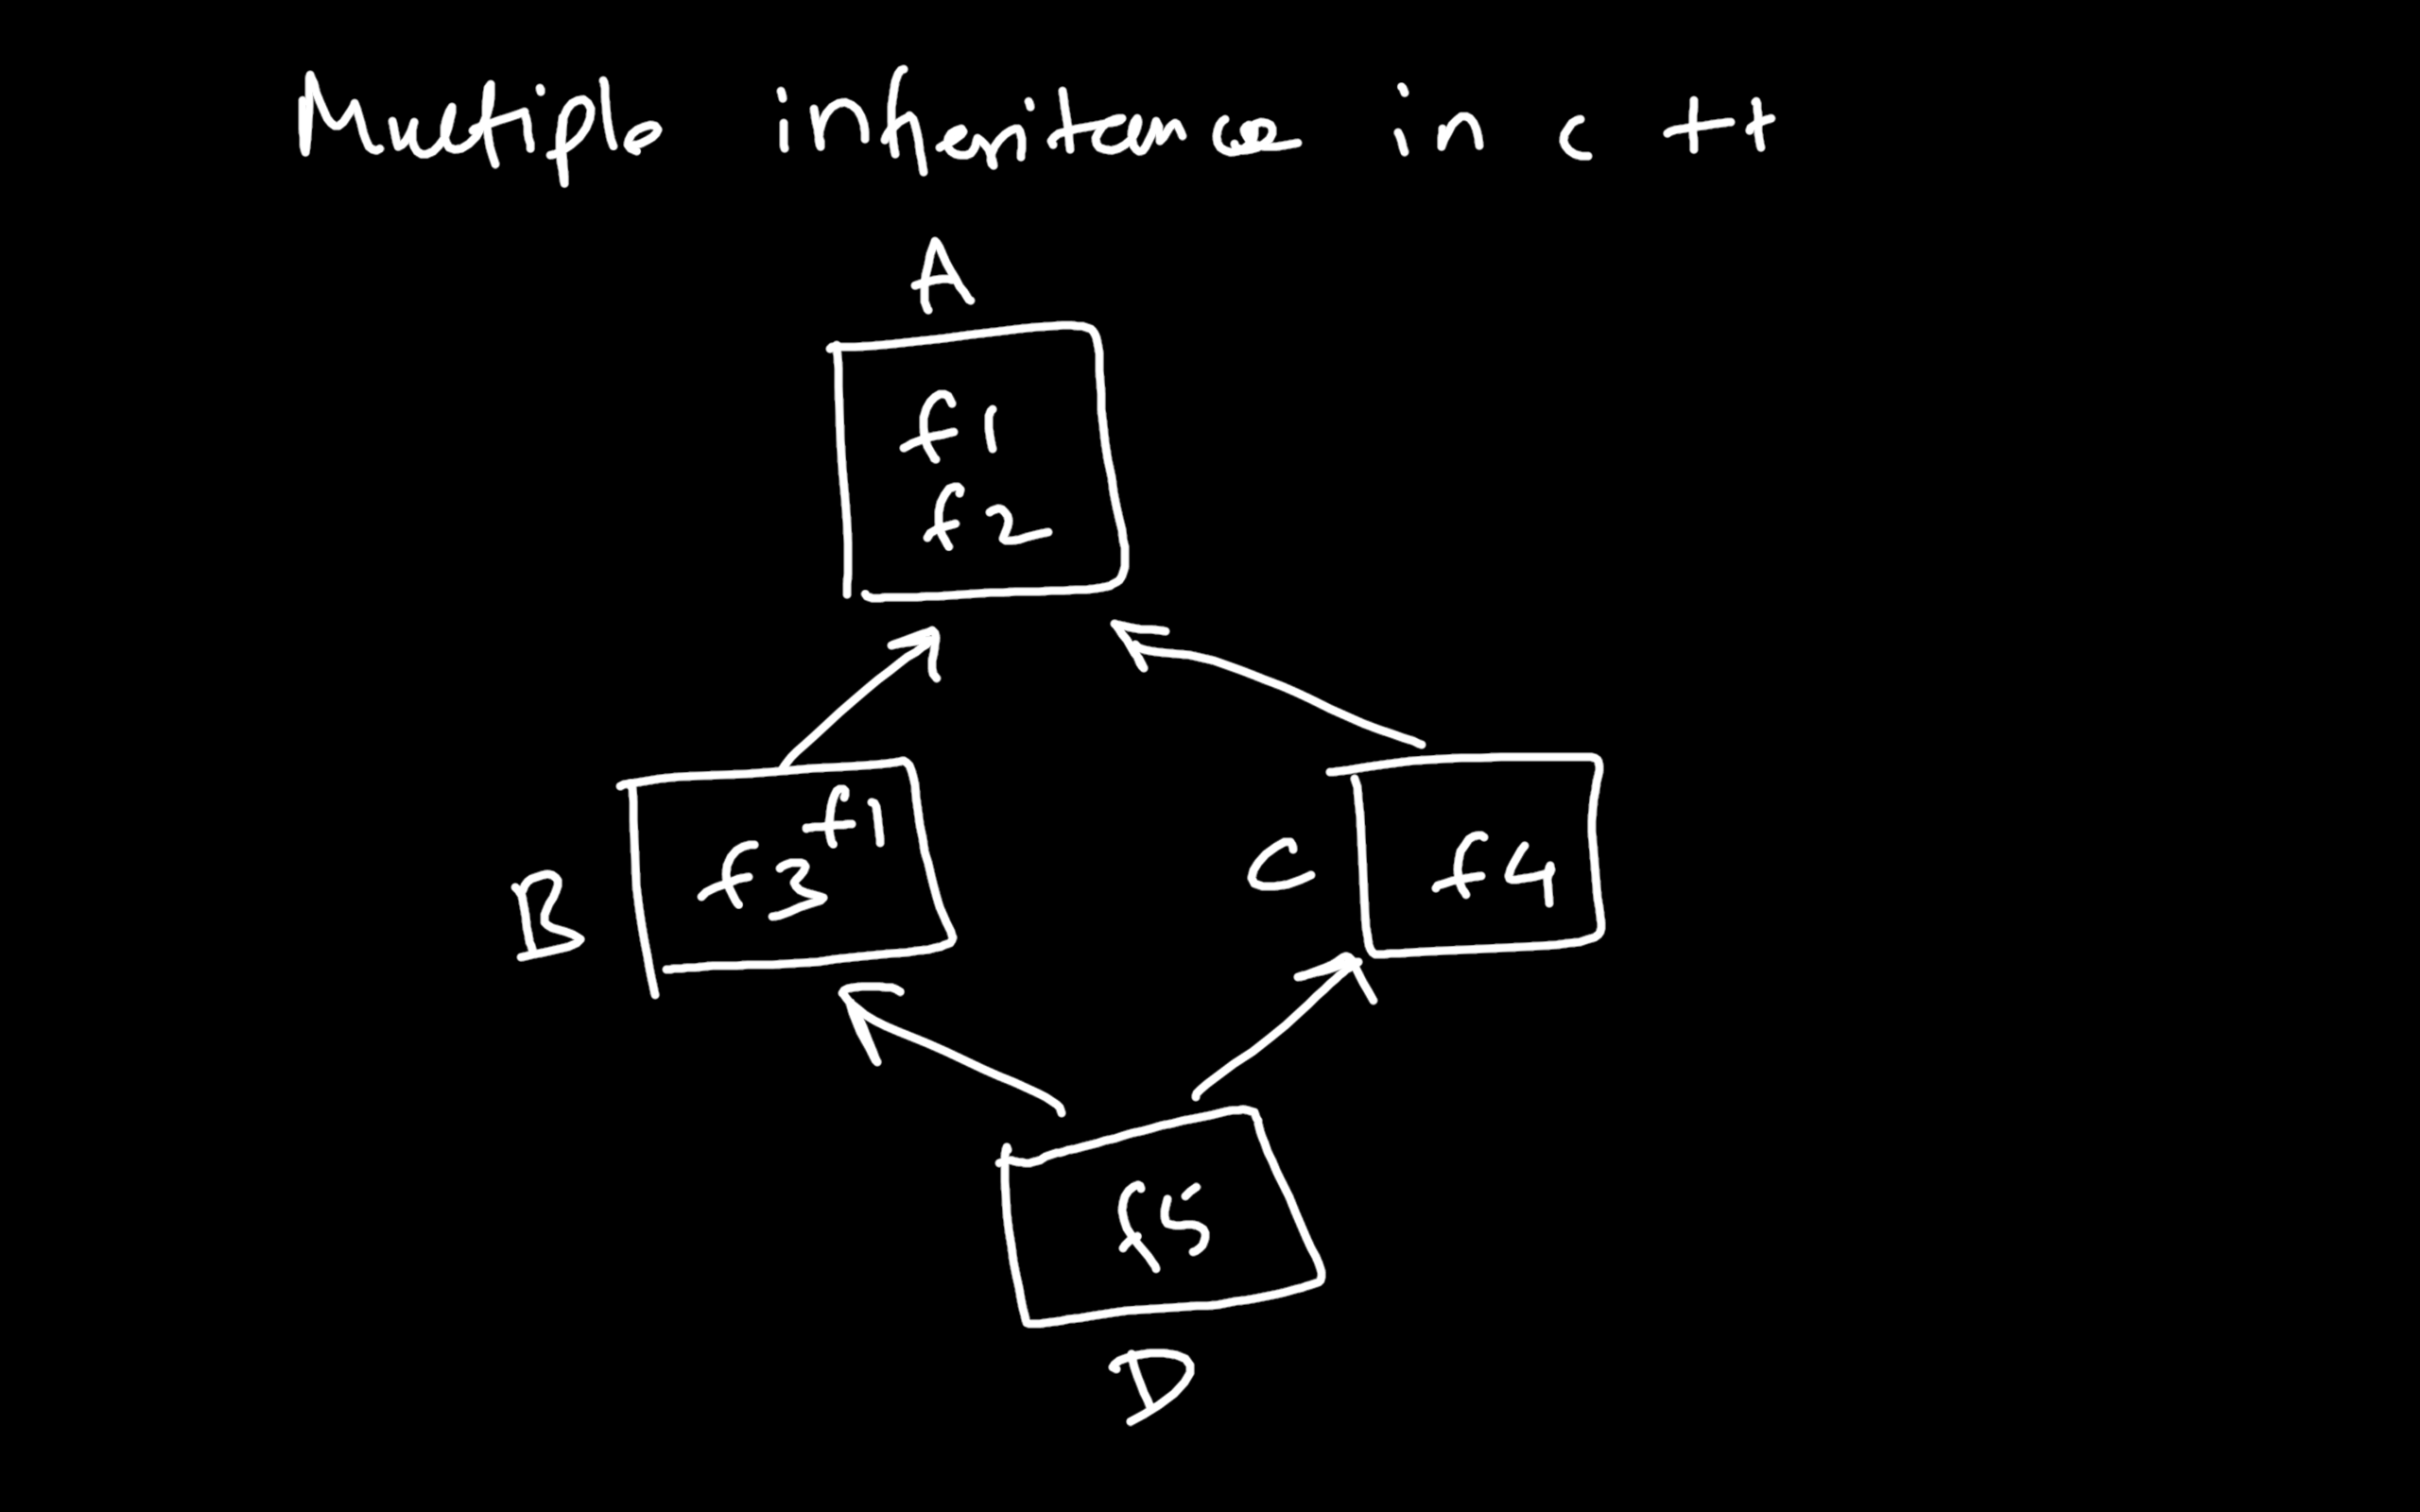 Multiple inheritance in c ++
A
f1
f2
f1
B f3
C f4
f5
D